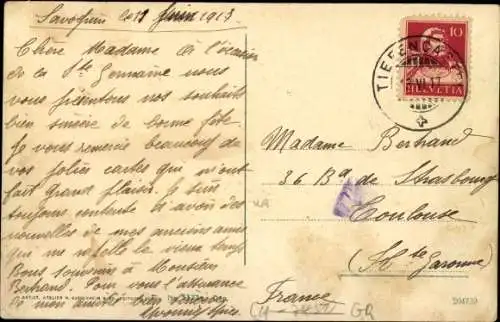 Savognin le 11 Juin 1917
Chère Madame à l'occasion
de la Ste Germaine nous
vous présentons nos souhaits
bien sincère de bonne fête
Je vous remercie beaucoup de
vos jolies cartes qui m'ont
fait grand plaisir. Je suis
toujours contente d'avoir des
nouvelles de mes anciens amis
qui me rappelle la vieux temps
Bons souvenirs à Monsieur
Bertrand. Pour vous l'assurance
de mon amitié bien
10
HELVETIA
TIEFENCASTEL
VI. 17
Madame Bertrand
36 Bd de Strasbourg
Toulouse
(Hte Garonne)
France
CH GR
204739